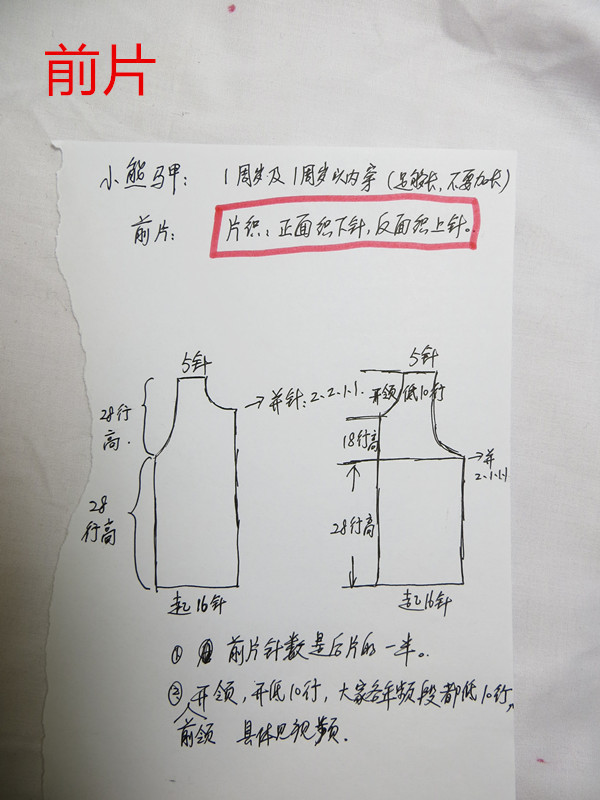 前片
小熊马甲: 1周岁及1周岁以内穿 (足够长,不要加长)
前片: 片织:正面织下针,反面织上针。
5针
28行高.
28行高
→并针:2.2.1.1.
起16针
5针
开领低10行
18行高
→并2.1.1.1
28行高
起16针
① 前片针数是后片的一半。
② 开领,开低10行,大家各年龄段都低10行,
前领 具体见视频.